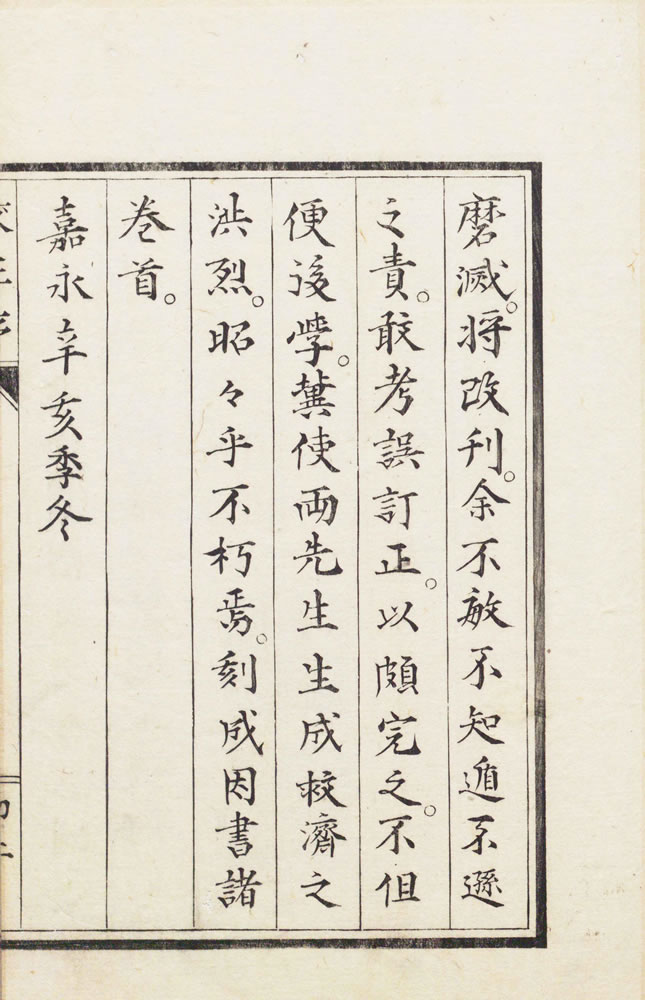 磨滅。将改刊。余不敏不知遁不遜
之責。敢考誤訂正。以頗完之。不但
便後学。冀使両先生生成救濟之
洪烈。昭々乎不朽焉。刻成因書諸
巻首。
嘉永辛亥季冬